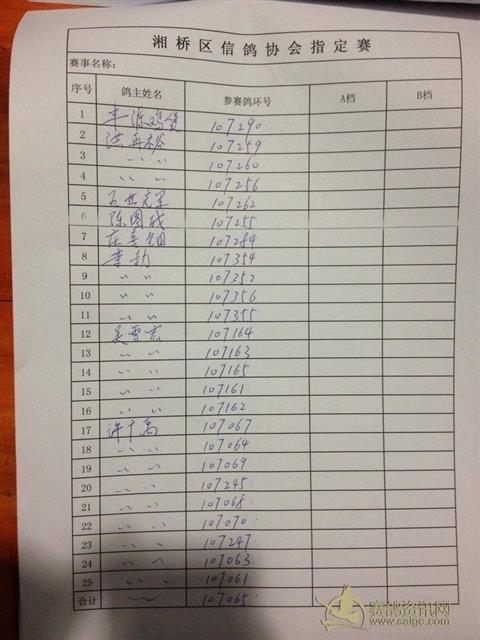 湘桥区信鸽协会指定赛
赛事名称:
序号 鸽主姓名 参赛鸽环号 A档 B档
1 丰源鸡煲 107290
2 洪再裕 107259
3 〃 〃 107260
4 〃 〃 107256
5 107262
6 陈图成 107255
7 107284
8 李勤 107354
9 〃 〃 107352
10 〃 〃 107356
11 〃 〃 107355
12 107164
13 〃 〃 107163
14 〃 〃 107165
15 〃 〃 107161
16 〃 〃 107162
17 许广高 107067
18 〃 〃 107064
19 〃 〃 107069
20 〃 〃 107245
21 〃 〃 107068
22 〃 〃 107070
23 〃 〃 107247
24 〃 〃 107063
25 〃 〃 107061
合计 〃 〃 107065
赛鸽资讯网
www.saige.com